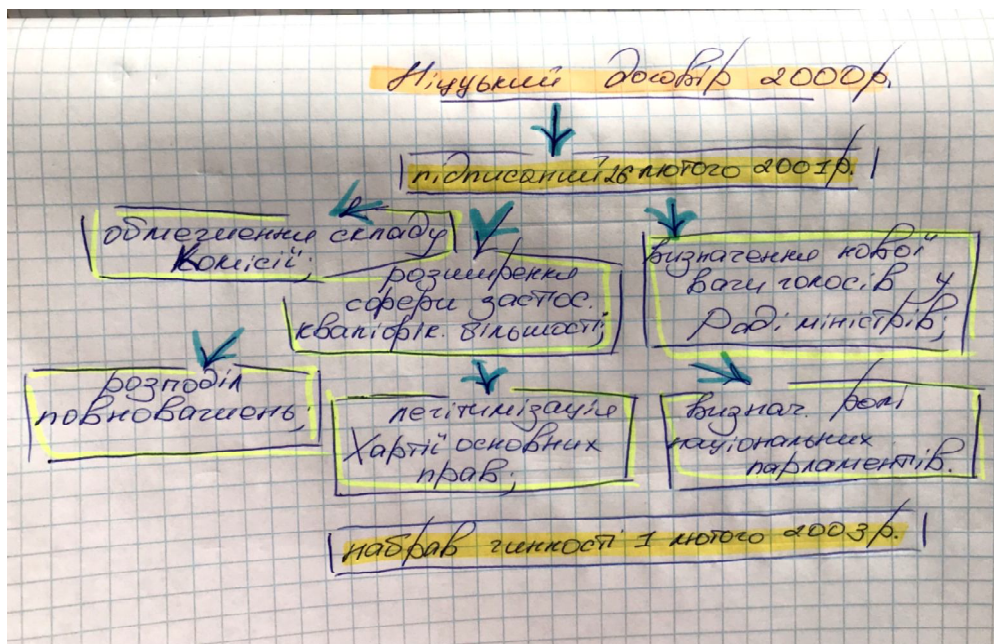 Ніцуький договір 2000р.
підписаний 26 лютого 2001р.
обмеження складу
Комісії;
розширення
сфери застос.
кваліфік. більшості;
визначення нової
ваги голосів у
Раді міністрів;
розподіл
повноважень;
легітимізація
Хартії основних
прав;
визнач. ролі
національних
парламентів.
набрав чинності 1 лютого 2003р.